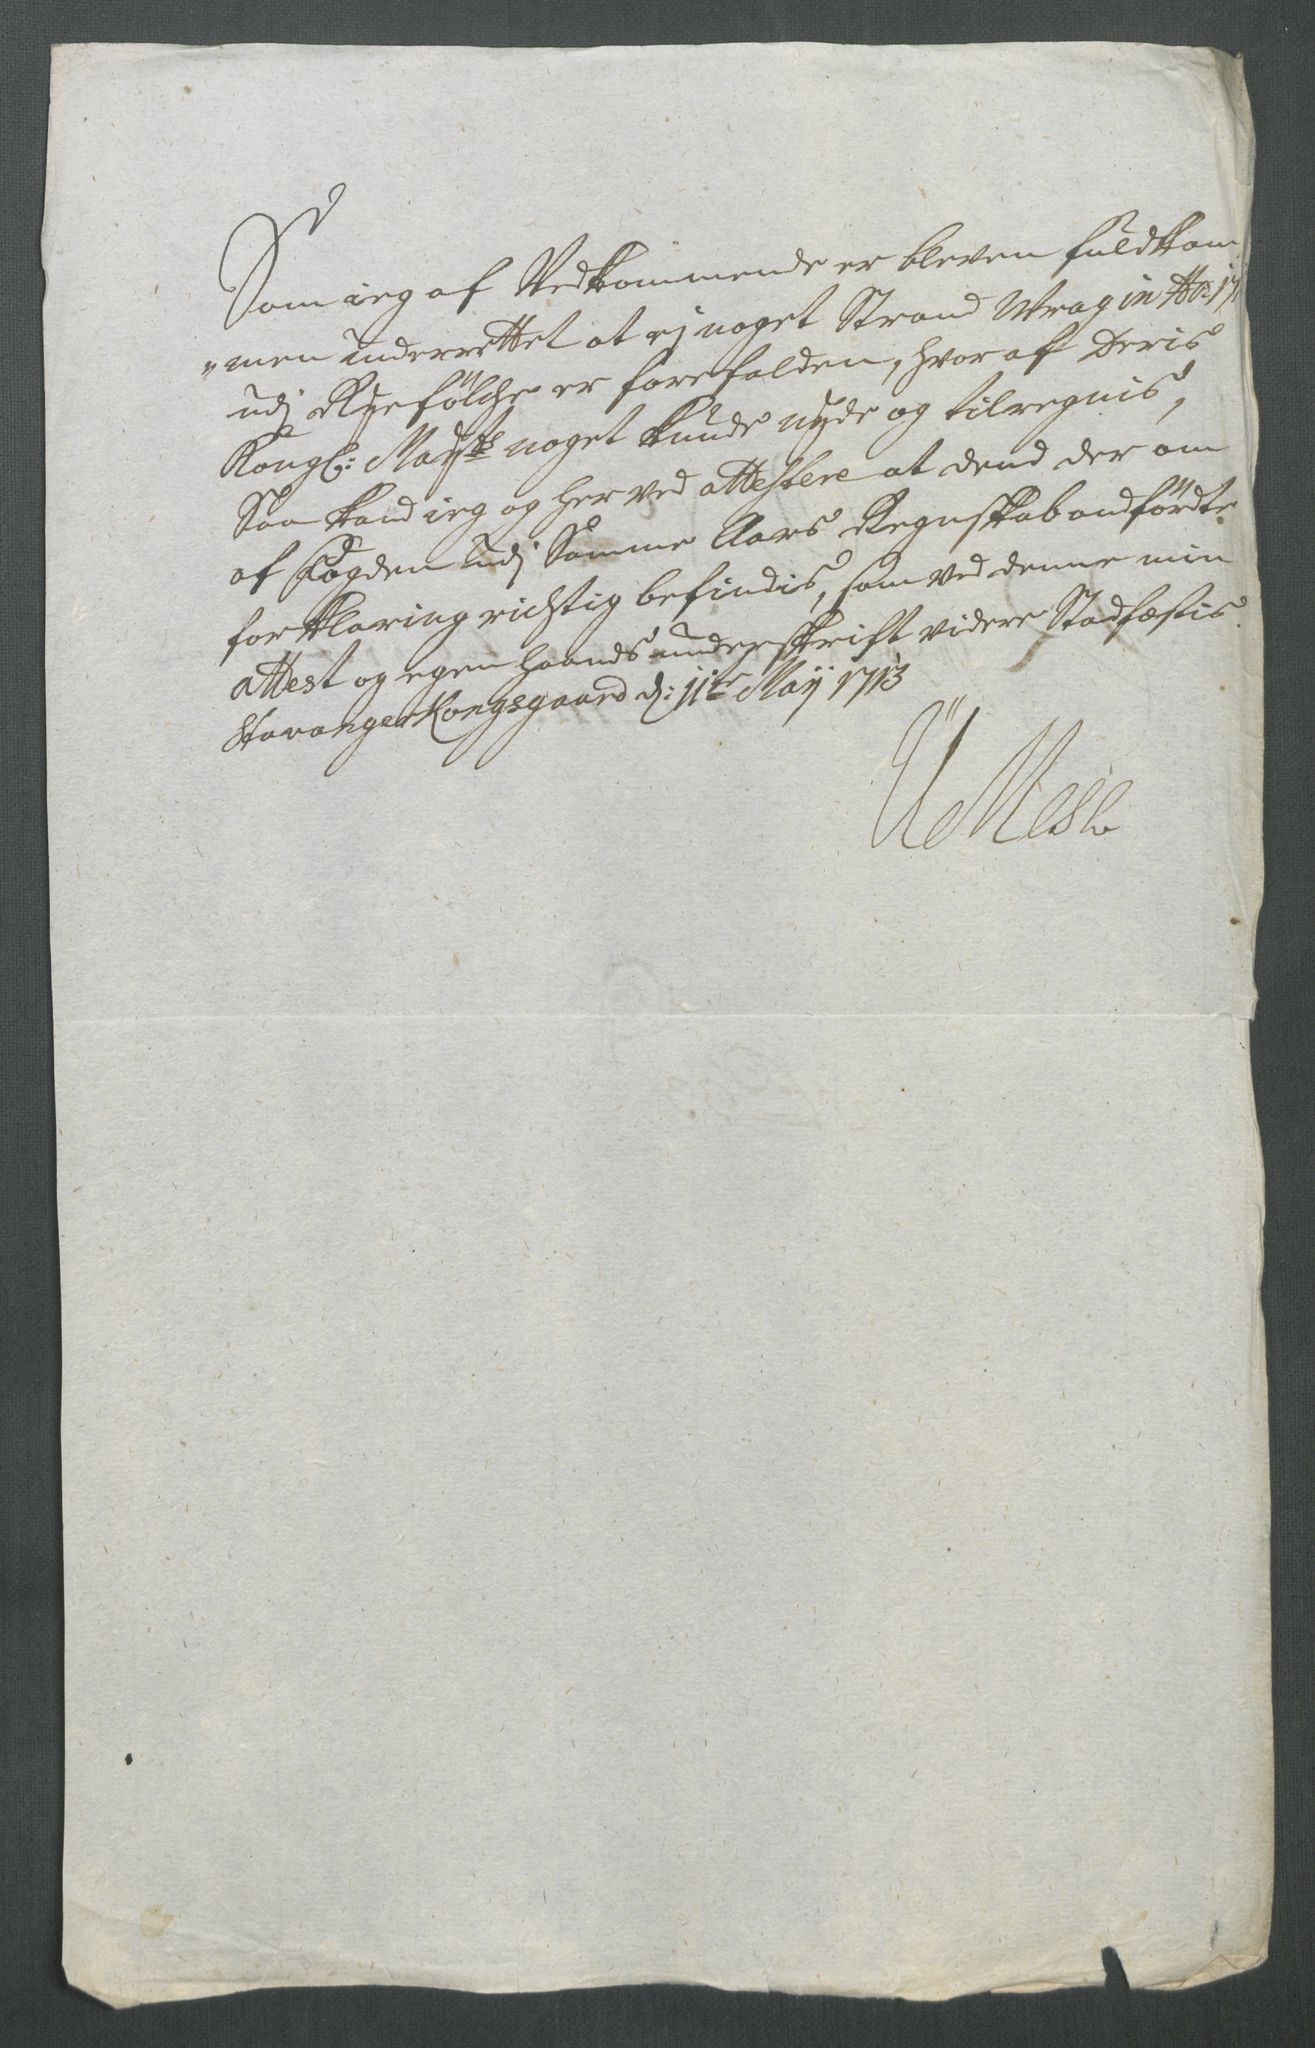 Som ieg af Vedkommende er bleven fuldkom„
„men underrettet at ej noget Strand Wrag in Ao 171
udj Ryefölche er forefalden, hvoraf Deris
Kongl: Maÿts noget kunde nyde og tilregnis,
Saa kand ieg og herved attestere at dend der om
af Fogden udj Samme Aars Regnskab andfördte
forklaring richtig befindis, som ved denne min
attest og egen haands underskrift videre Stadfæstis.
Stavanger Kongsgaard d: 11te Maÿ 1713